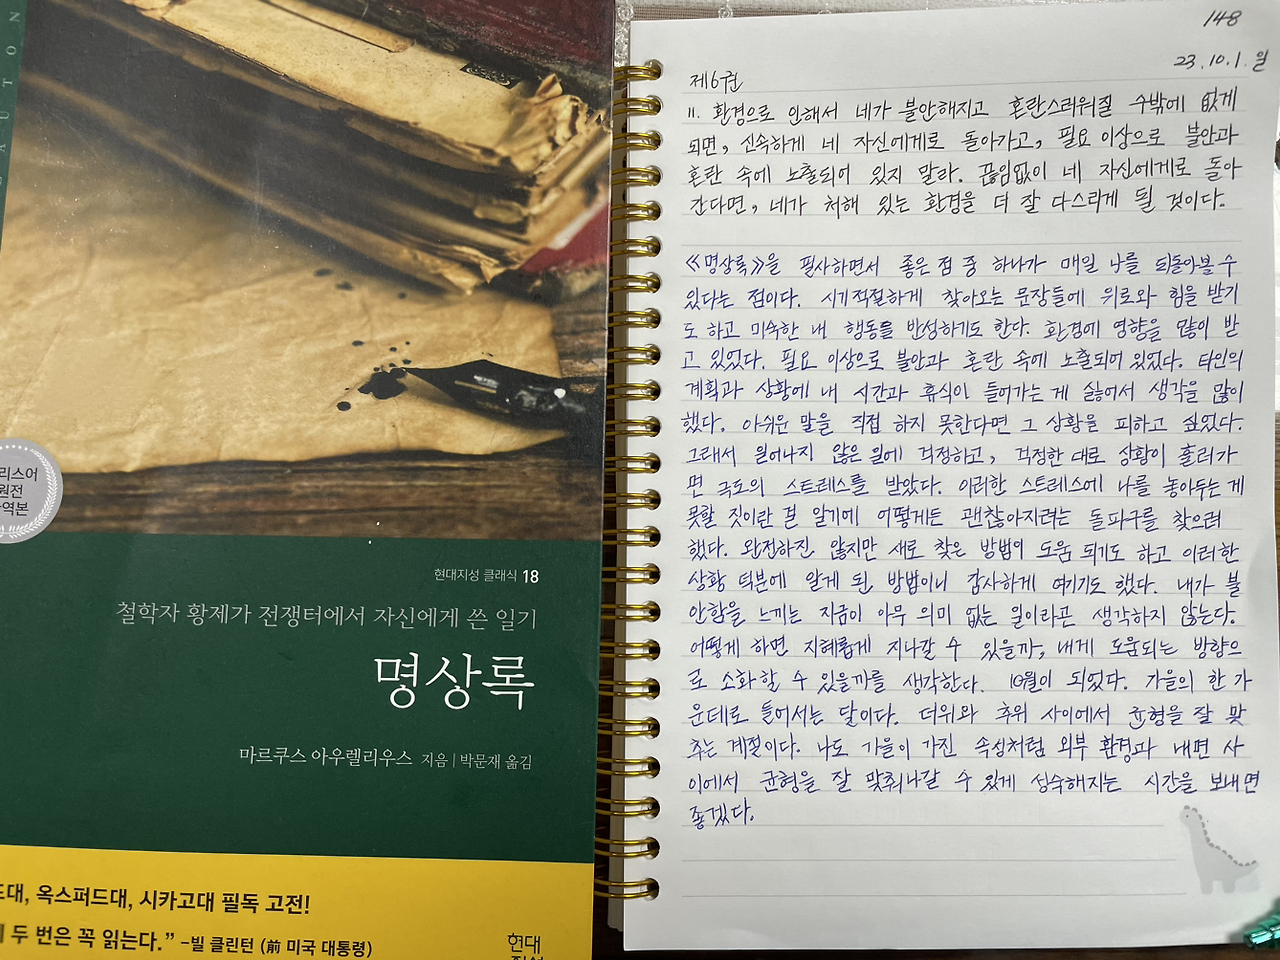 LAUTON
리스어
원전
역본
현대지성 클래식 18
철학자 황제가 전쟁터에서 자신에게 쓴 일기
명상록
마르쿠스 아우렐리우스 지음 | 박문재 옮김
드대, 옥스퍼드대, 시카고대 필독 고전!
두 번은 꼭 읽는다.” –빌 클린턴 (前 미국 대통령)
현대
지성
148
23.10.1.일
제6권
11. 환경으로 인해서 네가 불안해지고 혼란스러워질 수밖에 없게
되면, 신속하게 네 자신에게로 돌아가고, 필요 이상으로 불안과
혼란 속에 노출되어 있지 말라. 끊임없이 네 자신에게로 돌아
간다면, 네가 처해 있는 환경을 더 잘 다스리게 될 것이다.
《명상록》을 필사하면서 좋은 점 중 하나가 매일 나를 되돌아볼 수
있다는 점이다. 시기적절하게 찾아오는 문장들에 위로와 힘을 받기
도 하고 미숙한 내 행동을 반성하기도 한다. 환경에 영향을 많이 받
고 있었다. 필요 이상으로 불안과 혼란 속에 노출되어 있었다. 타인의
계획과 상황에 내 시간과 휴식이 들어가는 게 싫어서 생각을 많이
했다. 아쉬운 말을 직접 하지 못한다면 그 상황을 피하고 싶었다.
그래서 일어나지 않은 일에 걱정하고, 걱정한 대로 상황이 흘러가
면 극도의 스트레스를 받았다. 이러한 스트레스에 나를 놓아두는 게
못할 짓이란 걸 알기에 어떻게든 괜찮아지려는 돌파구를 찾으려
했다. 완전하진 않지만 새로 찾은 방법이 도움 되기도 하고 이러한
상황 덕분에 알게 된 방법이니 감사하게 여기기도 했다. 내가 불
안함을 느끼는 지금이 아무 의미 없는 일이라곤 생각하지 않는다.
어떻게 하면 지혜롭게 지나갈 수 있을까, 내게 도움되는 방향으
로 소화할 수 있을까를 생각한다. 10월이 되었다. 가을의 한 가
운데로 들어서는 달이다. 더위와 추위 사이에서 균형을 잘 맞
추는 계절이다. 나도 가을이 가진 속성처럼 외부 환경과 내면 사
이에서 균형을 잘 맞춰나갈 수 있게 성숙해지는 시간을 보내면
좋겠다.